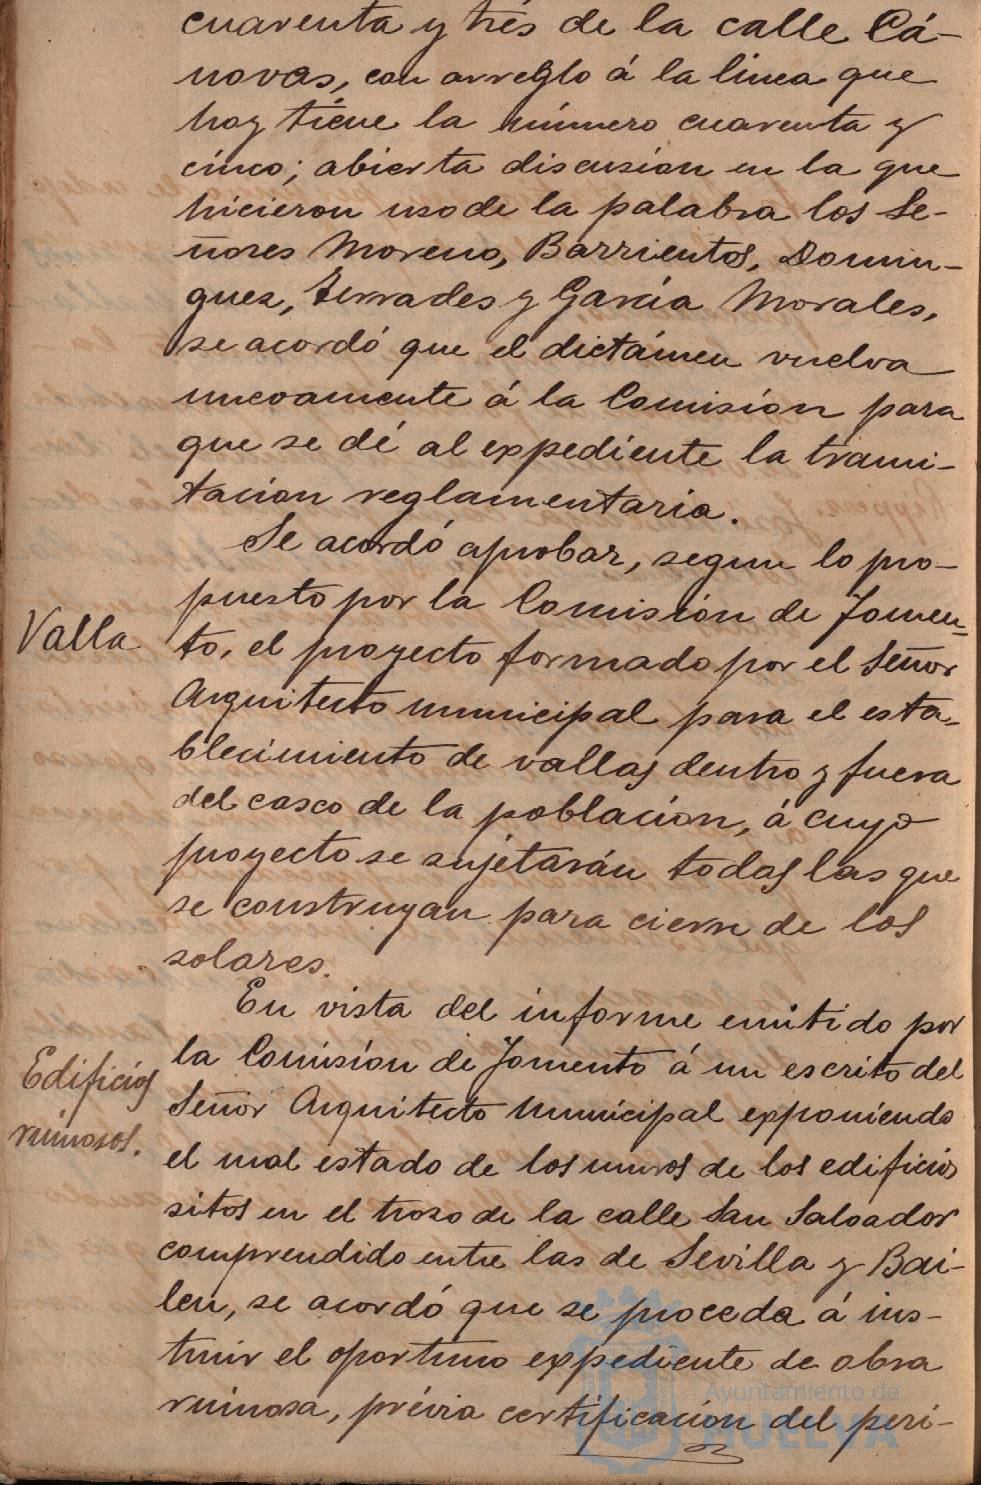 cuarenta y trés de la calle Cá-
novas, con arreglo á la linea que
hoy tiene la número cuarenta y
cinco; abierta discusion en la que
hicieron uso de la palabra los Se-
ñores Moreno, Barrientos, Domin-
guez, Terrades y García Morales,
se acordó que el dictámen vuelva
nuevamente á la Comisión para
que se dé al expediente la trami-
tacion reglamentaria.
Se acordó aprobar, segun lo pro-
puesto por la Comisión de Fomen-
Valla
to, el proyecto formado por el Señor
Arquitecto municipal para el esta-
blecimiento de vallas dentro y fuera
del casco de la población, á cuyo
proyecto se sujetarán todas las que
se construyan para cierre de los
solares.
En vista del informe emitido por
la Comisión de Fomento á un escrito del
Edificios
ruinosos.
Señor Arquitecto Municipal exponiendo
el mal estado de los muros de los edificios
sitos en el trozo de la calle San Salvador
comprendido entre las de Sevilla y Bai-
len, se acordó que se proceda á ins-
truir el oportuno expediente de obra
ruinosa, prévia certificación del peri-
Ayuntamiento de
HUELVA